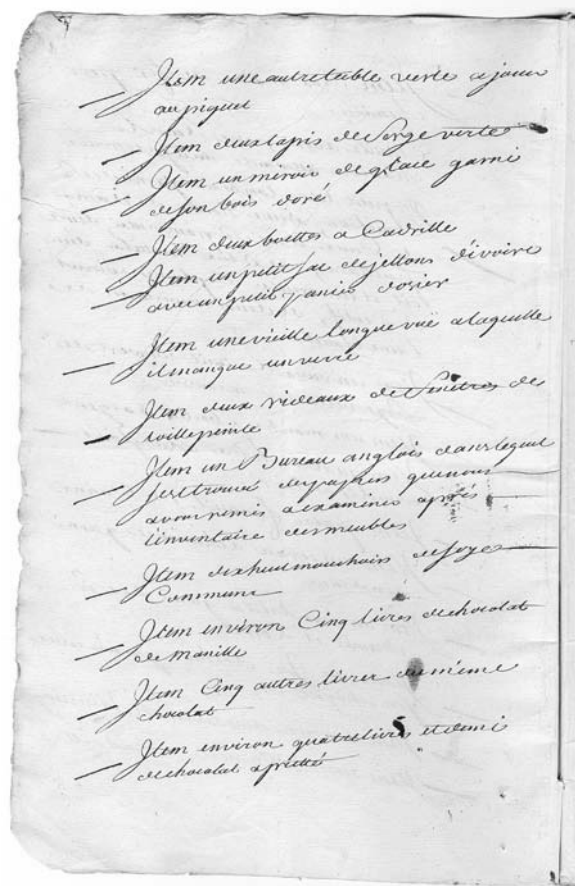 Item une autre table verte a jouer
au piquet
Item deux tapis de Serge verte
Item un miroir de glace garni
de son bois doré
Item deux boettes a Cadrille
Item un petit sac de jettons d'ivoire
avec un petit panier dosier
Item une vieille longue vuë a laquelle
il manque un verre
Item deux rideaux de fenêtres de
toille peinte
Item un Bureau anglois dans lequel
sest trouvé des papiers que nous
avons remis a examiner après
l'inventaire des meubles
Item dix huit mouchoirs de soye
Commune
Item environ Cinq livres de chocolat
de Manille
Item Cinq autres livres du même
chocolat
Item environ quatre livres et demi
de chocolat aprêté